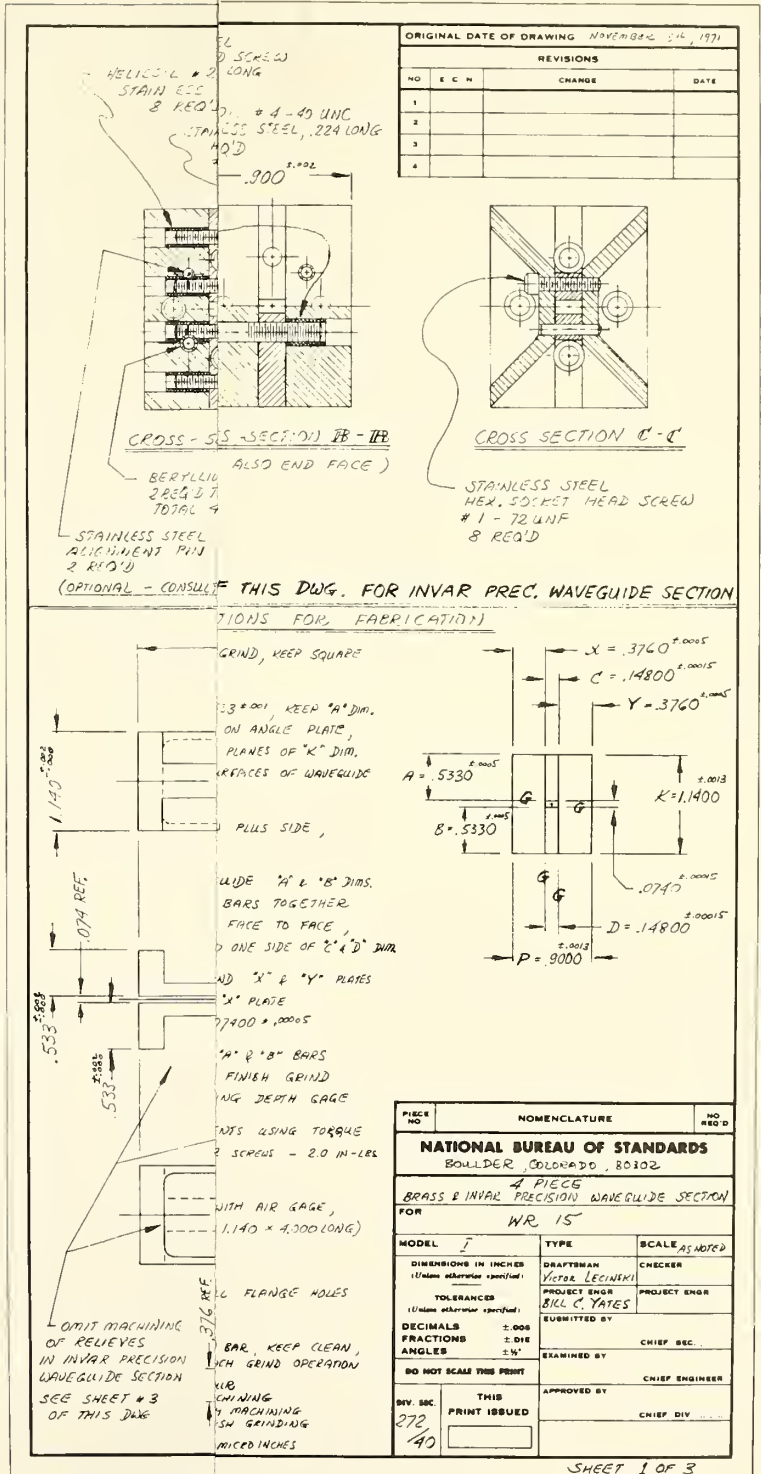 ORIGINAL DATE OF DRAWING NOVEMBER 1971
REVISIONS
NO E C N CHANGE DATE
1
2
3
4
EL
D SCREW
HELICOIL # 2 LONG
STAIN ESS
8 REQ'D
# 4-40 UNC
STAINLESS STEEL, .224 LONG
REQ'D
.900 ±.002
CROSS - SS -SECTION B - B
ALSO END FACE )
BERYLLIU
2 REQ'D T
TOTAL 4
STAINLESS STEEL
ALIGNMENT PIN
2 REQ'D
(OPTIONAL - CONSULT
CROSS SECTION C-C
STAINLESS STEEL
HEX. SOCKET HEAD SCREW
# 1 - 72 UNF
8 REQ'D
F THIS DWG. FOR INVAR PREC. WAVEGUIDE SECTION
TIONS FOR FABRICATION
GRIND, KEEP SQUARE
33 ±.001, KEEP "A" DIM.
ON ANGLE PLATE,
PLANES OF "K" DIM.
RFACES OF WAVEGUIDE
PLUS SIDE,
UIDE "A" & "B" DIMS.
BARS TOGETHER
FACE TO FACE,
D ONE SIDE OF "C" & "D" DIM
ND "X" & "Y" PLATES
"X" PLATE
07400 ± .00005
"A" & "B" BARS
FINISH GRIND
NG DEPTH GAGE
NTS USING TORQUE
2 SCREWS - 2.0 IN-LBS
WITH AIR GAGE,
1.140 × 4.000 LONG)
L FLANGE HOLES
BAR, KEEP CLEAN,
CH GRIND OPERATION
UR
CHINING
MACHINING
SH GRINDING
MICRO INCHES
1.140 +.002 -.000
.074 REF.
.533
.533 +.002 -.000
.376 REF.
OMIT MACHINING
OF RELIEVES
IN INVAR PRECISION
WAVEGUIDE SECTION
SEE SHEET # 3
OF THIS DWG
X = .3760 ±.0005
C = .14800 ±.00015
Y = .3760 ±.0005
A = .5330 ±.0005
K = 1.1400 ±.0013
G G
B = .5330 ±.0005
.0740 ±.00015
G
G
D = .14800 ±.00015
P = .9000 ±.0013
PIECE NO NOMENCLATURE NO REQ'D
NATIONAL BUREAU OF STANDARDS
BOULDER, COLORADO, 80302
4 PIECE
BRASS & INVAR PRECISION WAVEGUIDE SECTION
FOR
WR 15
MODEL I TYPE SCALE AS NOTED
DIMENSIONS IN INCHES
(Unless otherwise specified)
DRAFTSMAN
VICTOR LECINSKI
CHECKER
TOLERANCES
(Unless otherwise specified)
PROJECT ENGR
BILL C. YATES
PROJECT ENGR
DECIMALS ±.005
FRACTIONS ±.016
ANGLES ±½°
SUBMITTED BY
CHIEF SEC.
EXAMINED BY
CHIEF ENGINEER
DO NOT SCALE THIS PRINT
DIV. SEC.
272/40
THIS
PRINT ISSUED
APPROVED BY
CHIEF DIV
SHEET 1 OF 3